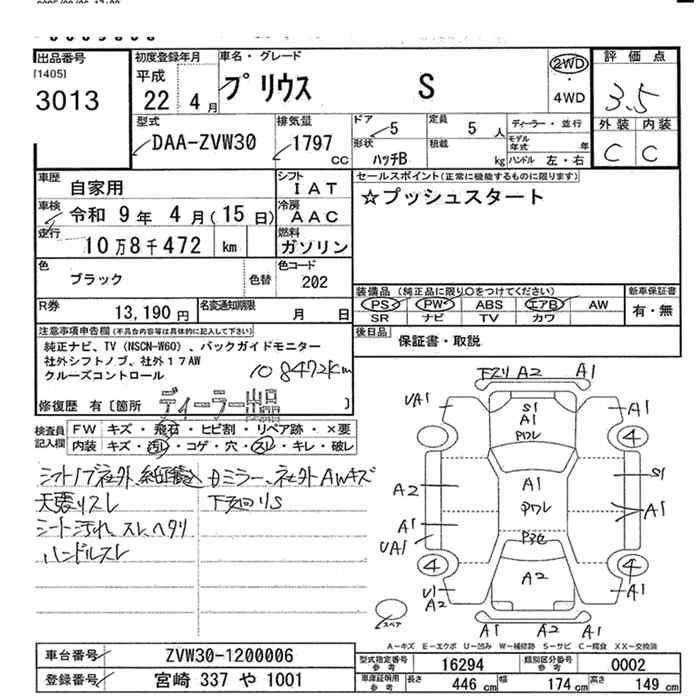 出品番号
[1405]
3013
初度登録年月
平成
22年 4月
車名・グレード
プリウス S
2WD
・
4WD
評価点
3.5
外装 内装
C C
型式
DAA-ZVW30
排気量
1797
CC
ドア
5
形状
ハッチB
定員
5人
積載
kg
ディーラー・並行
モデル年式 年
ハンドル 左・右
車歴
自家用
車検
令和 9年 4月(15日)
走行
10万8千472 km
シフト
IAT
冷房
AAC
燃料
ガソリン
色
ブラック
色替
色コード
202
R券
13,190円
名変通知期限
月 日
セールスポイント(正常に機能するものに限ります)
☆プッシュスタート
装備品(純正品に限り○をつけてください)
PS PW ABS エアB AW
SR ナビ TV カワ
新車保証書
有・無
後日品
保証書・取説
注意事項申告欄(不具合内容等は具体的に記入して下さい)
純正ナビ、TV(NSCN-W60)、バックガイドモニター
社外シフトノブ、社外17AW
クルーズコントロール
108472km
修復歴 有〔箇所 ディーラー出品 〕
検査員記入欄
FW キズ・飛石・ヒビ割・リペア跡・×要
内装 キズ・汚レ・コゲ・穴・スレ・キレ・破レ
シフトノブ社外
天張リスレ
シート汚れ、スレ、ヘタリ
ハンドルスレ
ミラー、社外AWキズ
下廻りS
下スリA2 A1
UA1 A1
S1
A1
Pワレ
4
A2 A1 S1
Pワレ A1
A1
UA1
P3色
4 4
U1 A2 A1
A2
スペア
A1 A2 A1
A-キズ E-エクボ U-凹み W-補修跡 S-サビ C-腐食 XX-交換済
車台番号 ZVW30-1200006
登録番号 宮崎 337 や 1001
型式指定番号 参考 16294
類別区分番号 参考 0002
車庫証明用 参考 長さ 446cm 幅 174cm 高さ 149cm